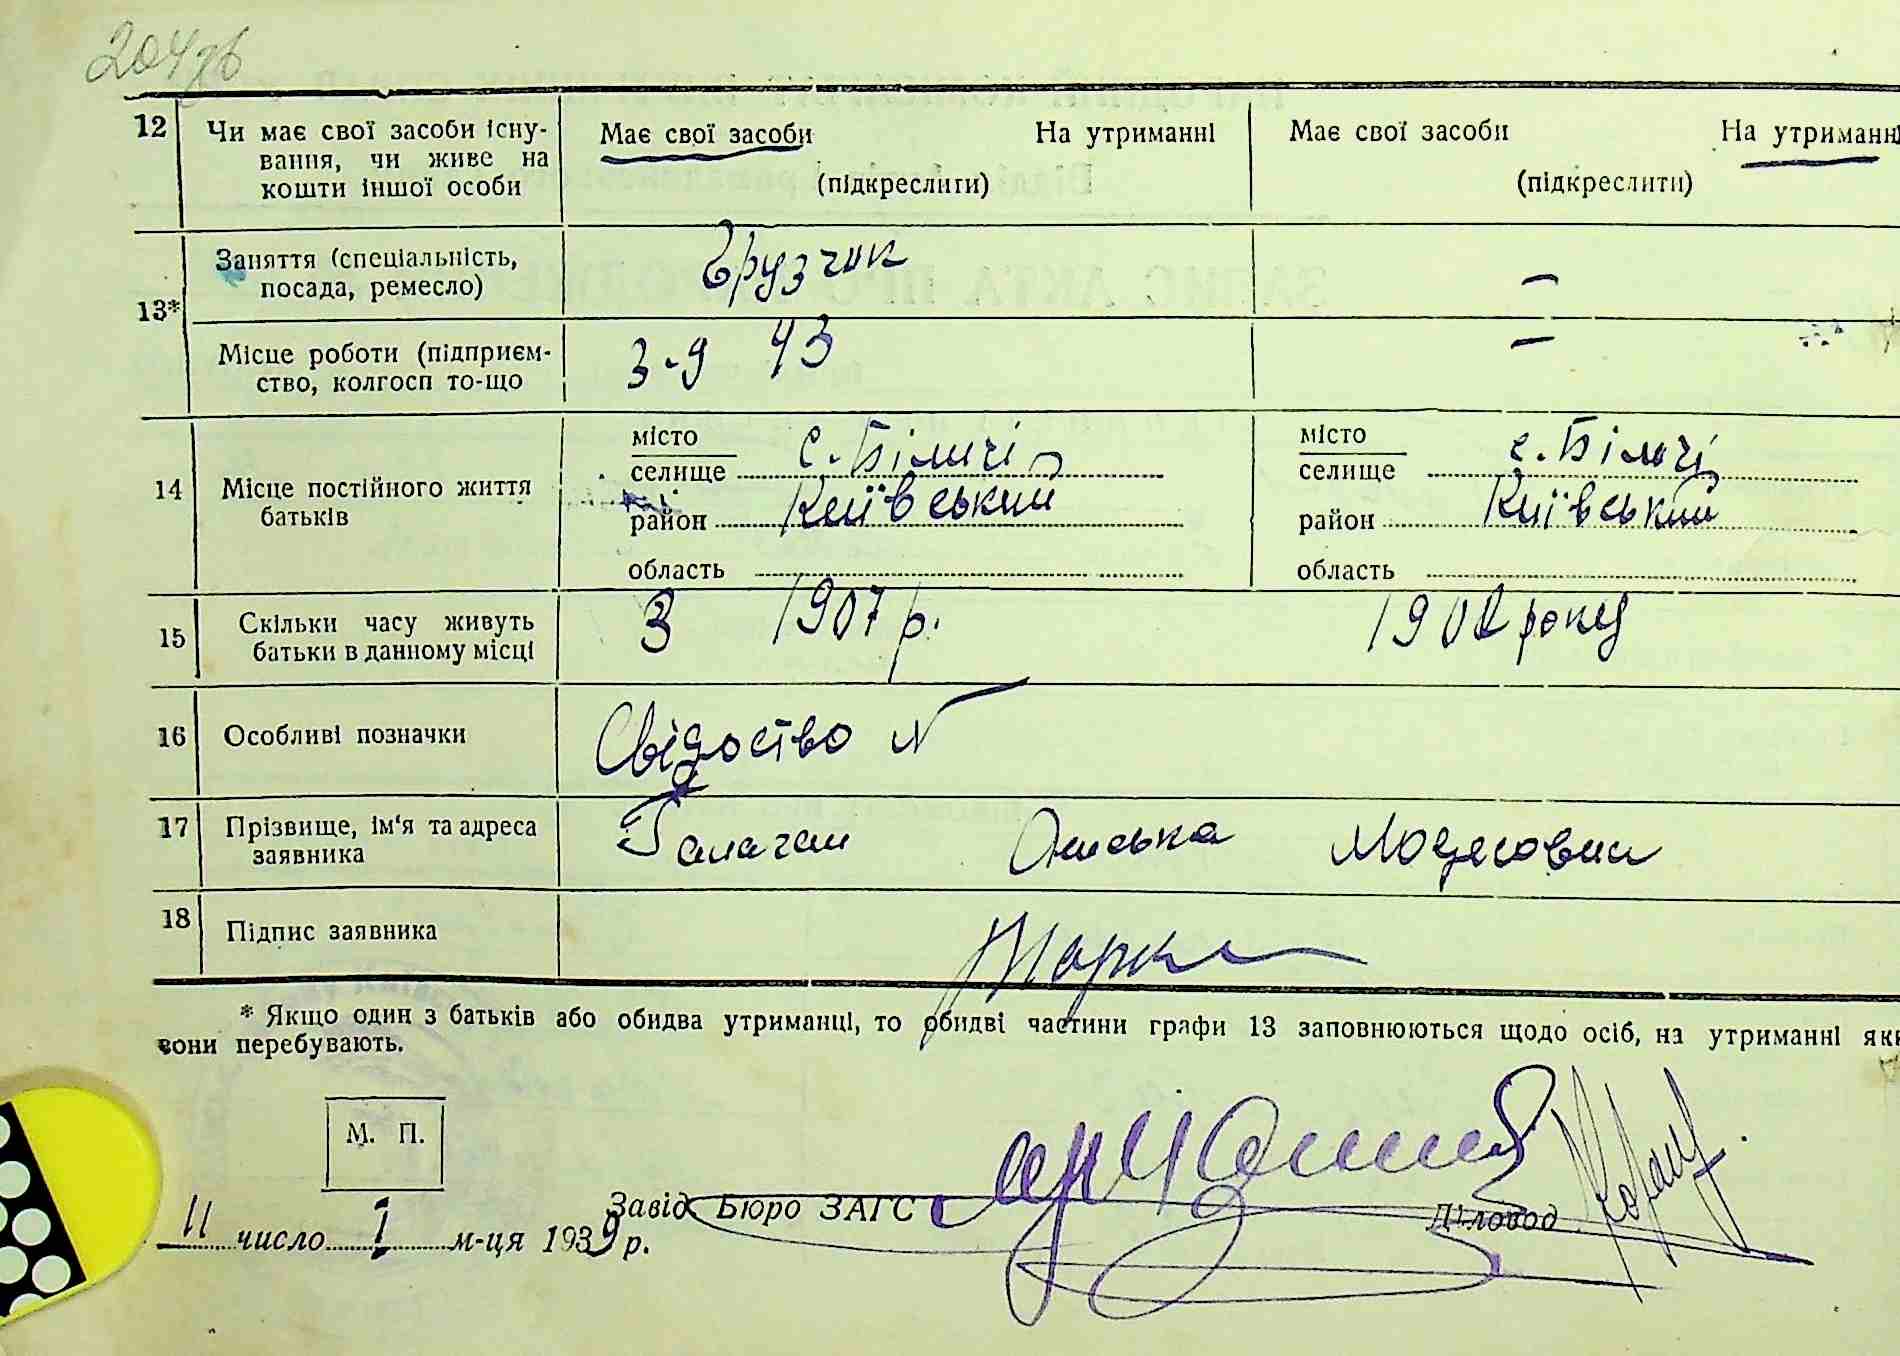 204зв
12 Чи має свої засоби існу- Має свої засоби На утриманні Має свої засоби На утриманні
вання, чи живе на
кошти іншої особи (підкреслити) (підкреслити)
13* Заняття (спеціальність, Грузчик –
посада, ремесло)
Місце роботи (підприєм- З-д 43 –
ство, колгосп то-що
14 Місце постійного життя батьків місто с. Біличі місто с. Біличі
селище селище
район Київський район Київський
область область
15 Скільки часу живуть З 1907 р. 1902 року
батьки в данному місці
16 Особливі позначки Свідоство №
17 Прізвище, ім'я та адреса Галаган Ониська
заявника
18 Підпис заявника
* Якщо один з батьків або обидва утриманці, то обидві частини графи 13 заповнюються щодо осіб, на утриманні яки
вони перебувають.
М. П.
Завід. Бюро ЗАГС Діловод
11 число 1 м-ця 1939 р.